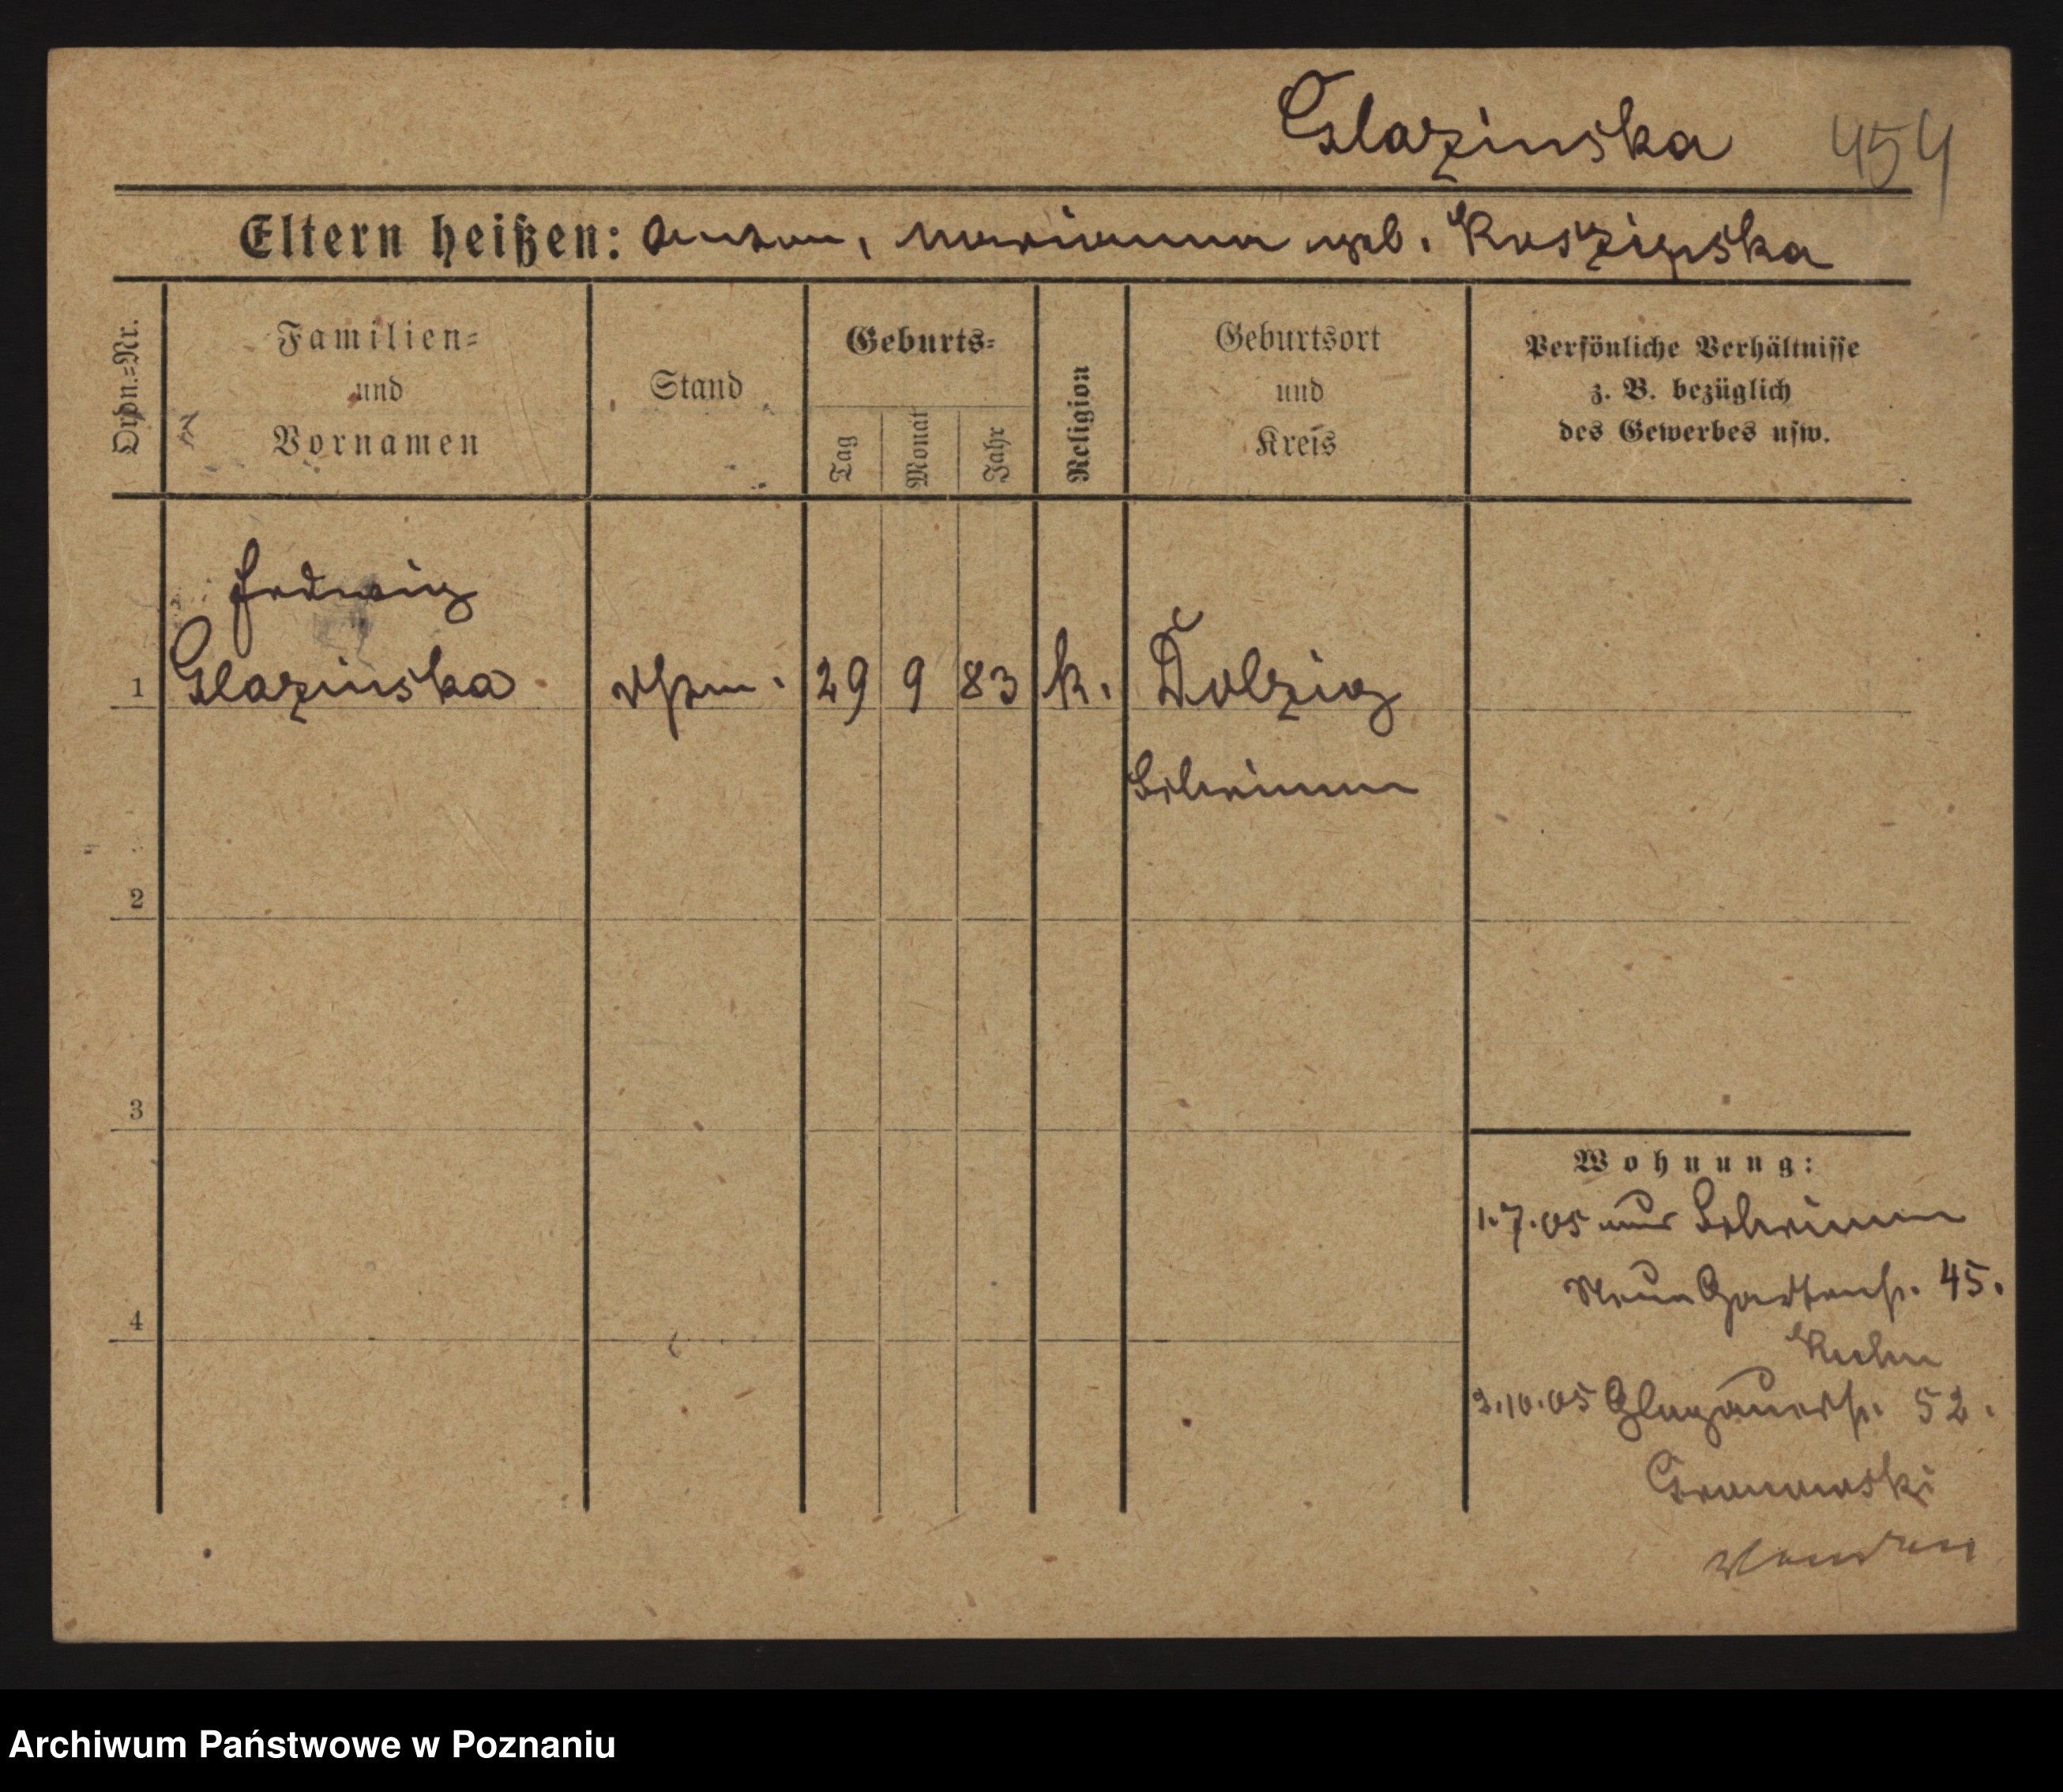 Glazinska 454
Eltern heißen: Anton, Marianna geb. Koszipska
Ordn.=Nr.
Familien=
und
Vornamen
Stand
Geburts=
Tag
Monat
Jahr
Religion
Geburtsort
und
Kreis
Persönliche Verhältnisse
z. B. bezüglich
des Gewerbes usw.
Hedwig
1 Glazinska 29 9 83 k. Dolzig
Schrimm
2
3
4
Wohnung:
1.7.05 aus Schrimm
Neue Gartenstr. 45.
Kuhn
2.10.05 Glogauerstr. 52.
Granowski
Archiwum Państwowe w Poznaniu